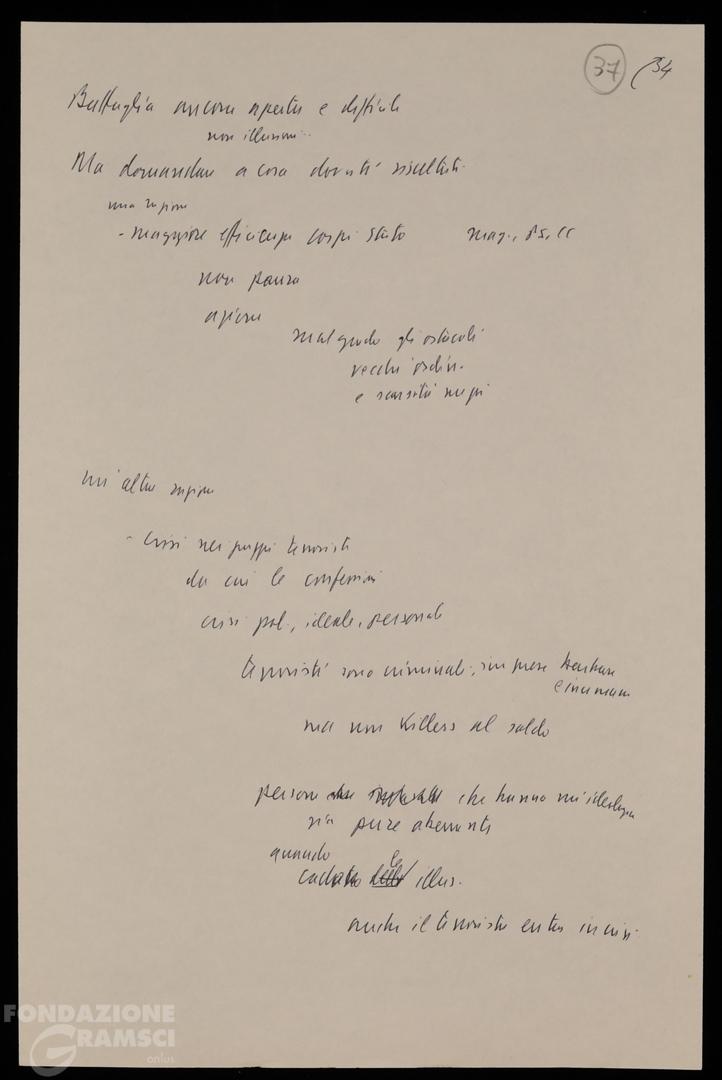 37 (34
Battaglia ancora aperta e difficile
non illusioni..
Ma domandare a cosa dovuti risultati.
una ragione
- maggiore efficienza corpi Stato mag., PS, CC
non paura
azione
malgrado gli ostacoli
vecchi ordin.
e scarsità mezzi
un'altra ragione
- crisi nei gruppi terroristi
da cui le confessioni
crisi pol., ideale, personale
terroristi sono criminali, sin pure
e inumani
ma non Killers al soldo
persone che hanno un'ideologia
sia pure aberrante
quando
cadute le illus.
anche il terrorista entra in crisi.
FONDAZIONE
GRAMSCI
onlus